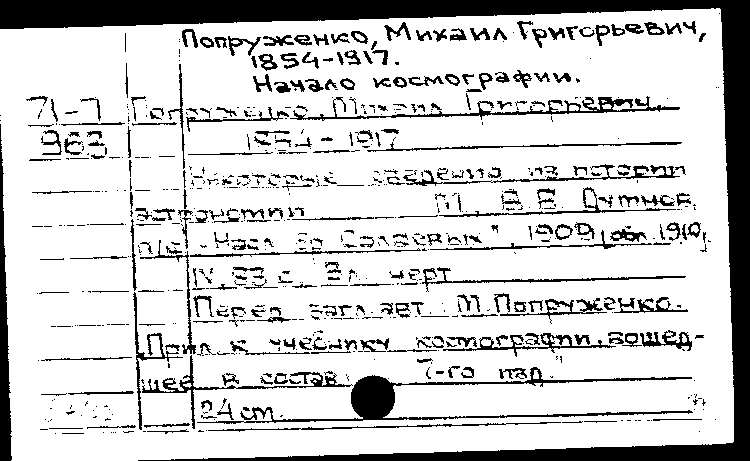 Попруженко, Михаил Григорьевич,
1854-1917.
Начало космографии.
71-7 Попруженко, Михаил Григорьевич,
963 1854-1917
Некоторые сведения из истории
астрономии М., В.В. Думнов,
п/ф „Насл. бр. Салаевых", 1909 [обл. 1910].
IV, 83 с., 3 л. черт.
Перед загл. авт.: М. Попруженко.
„Прил. к учебнику космографии, вошед-
шее в состав 7-го изд."
24 см.